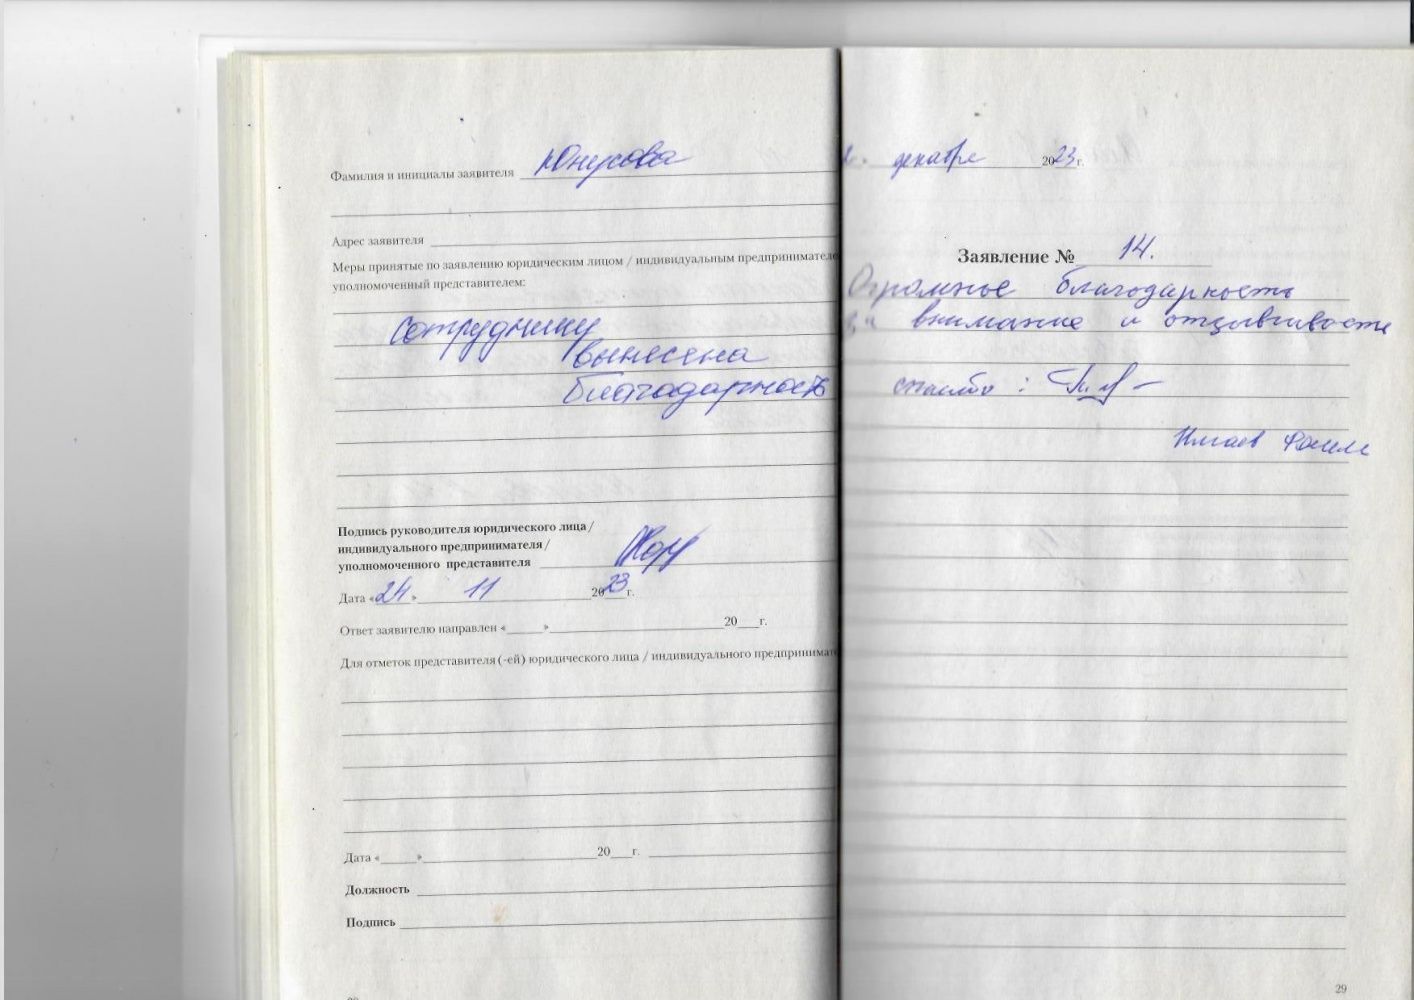 Фамилия и инициалы заявителя Юнусова
Адрес заявителя
Меры принятые по заявлению юридическим лицом / индивидуальным предпринимателе
уполномоченный представителем:
сотруднику
вынесена
благодарность
Подпись руководителя юридического лица /
индивидуального предпринимателя /
уполномоченного представителя
Дата «24» 11 2023 г.
Ответ заявителю направлен «      »       20    г.
Для отметок представителя (-ей) юридического лица / индивидуального предпринимат
Дата «      »       20    г.
Должность
Подпись
декабря 2023 г.
Заявление № 14.
Огромное благодарность
за внимание и отзывчивость
спасибо :
Фаиль
29